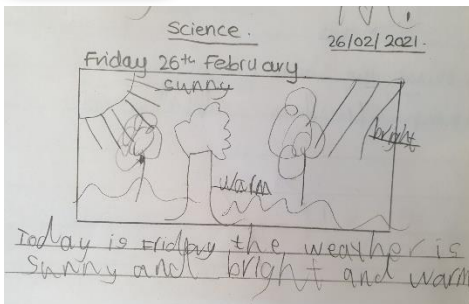 Science.
26/02/2021.
Friday 26th February
sunny
bright
warm
Today is Fridpay the weather is
sunny and bright and warm